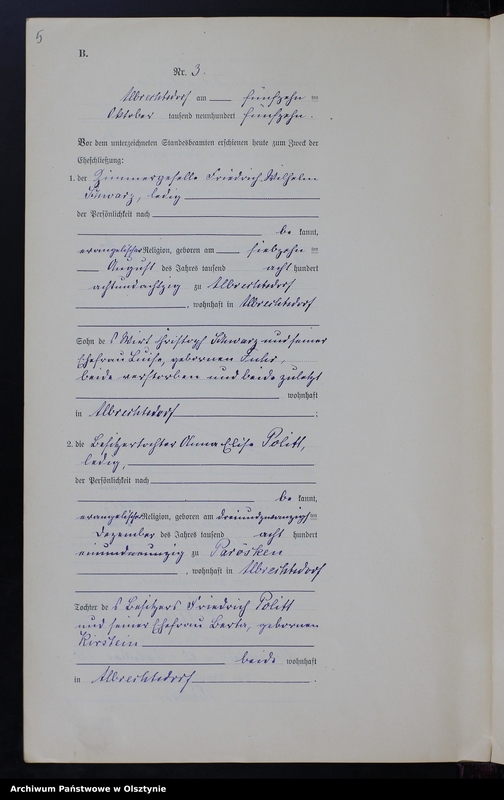 5
B.
Nr. 3.
Albrechtsdorf am fünfzehn ten
Oktober tausend neunhundert fünfzehn.
Vor dem unterzeichneten Standesbeamten erschienen heute zum Zweck der
Eheschließung:
1. der Zimmergeselle Friedrich Wilhelm
Schwarz, ledig
der Persönlichkeit nach
be kannt,
evangelischer Religion, geboren am siebzehn ten
August des Jahres tausend acht hundert
achtundachtzig zu Albrechtsdorf
, wohnhaft in Albrechtsdorf
Sohn des Wirt Christoph Schwarz und seiner
Ehefrau Luise, gebornen
beide verstorben und beide zuletzt
wohnhaft
in Albrechtsdorf ;
2. die Besitzertochter Anna Elise Politt,
ledig,
der Persönlichkeit nach
be kannt,
evangelischer Religion, geboren am dreiundzwanzigsten
Dezember des Jahres tausend acht hundert
einundneunzig zu Parösken
, wohnhaft in Albrechtsdorf
Tochter des Besitzers Friedrich Politt
und seiner Ehefrau Berta, gebornen
Kirstein
beide wohnhaft
in Albrechtsdorf .
Archiwum Państwowe w Olsztynie